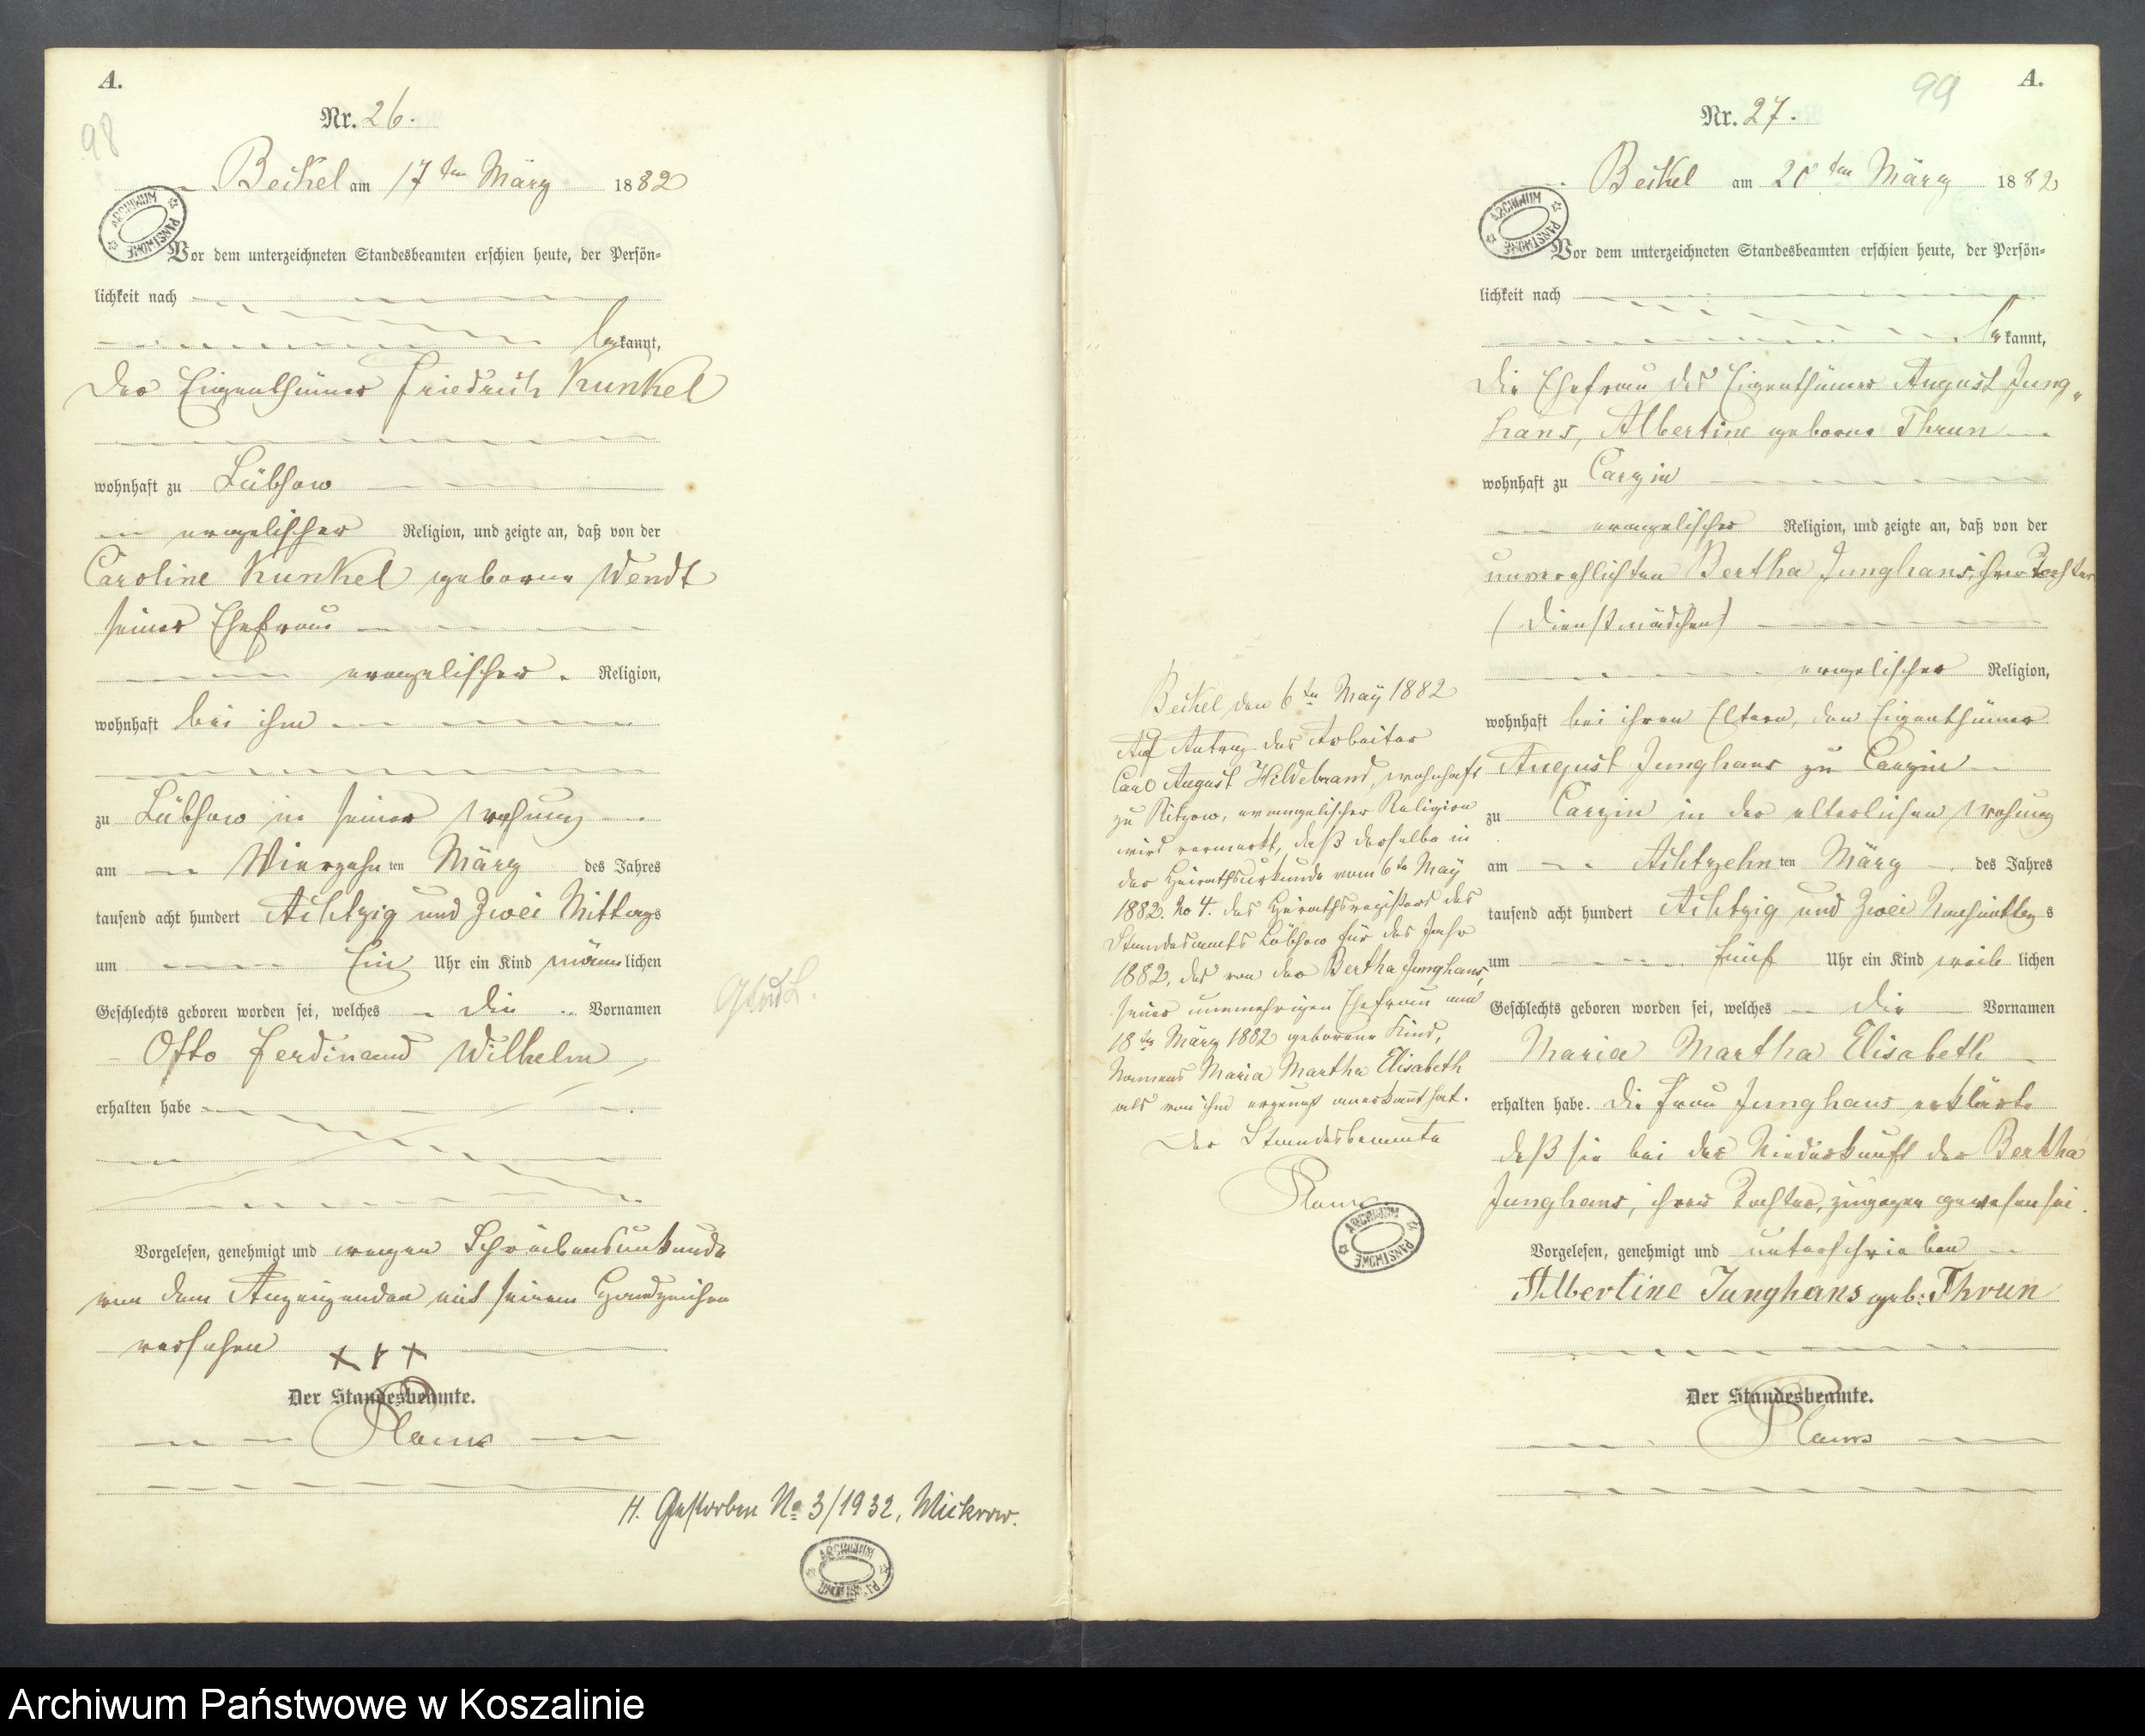 A.
98
Nr. 26.
Beckel am 17ten März 1882
Vor dem unterzeichneten Standesbeamten erschien heute, der Persön-
lichkeit nach
bekannt,
Der Eigenthümer Friedrich Kunkel
wohnhaft zu Lübzow
evangelischer Religion, und zeigte an, daß von der
Caroline Kunkel geborne Wendt
seiner Ehefrau
evangelischer Religion,
wohnhaft bei ihm
zu Lübzow in seiner Wohnung
am Vierzehnten März des Jahres
tausend acht hundert Achtzig und Zwei Mittags
um Ein Uhr ein Kind männlichen
Geschlechts geboren worden sei, welches die Vornamen
Otto Ferdinand Wilhelm
erhalten habe
Vorgelesen, genehmigt und wegen Schreibensunkunde
von dem Anzeigenden mit seinem Handzeichen
versehen
+++
Der Standesbeamte.
H. Gestorben No 3/1932, Mickrow.
ARCHIWUM PAŃSTWOWE
99
A.
Nr. 27.
Beckel am 20ten März 1882
Vor dem unterzeichneten Standesbeamten erschien heute, der Persön-
lichkeit nach
bekannt,
die Ehefrau des Eigenthümer August Jung-
hans, Albertine geborne Thrun
wohnhaft zu Carzin
evangelischer Religion, und zeigte an, daß von der
unverehlichten Bertha Junghans, ihrer Tochter
(Dienstmädchen)
evangelischer Religion,
wohnhaft bei ihren Eltern, dem Eigenthümer
August Junghans zu Carzin
zu Carzin in der elterlichen Wohnung
am Achtzehnten März des Jahres
tausend acht hundert Achtzig und Zwei Nachmittags
um fünf Uhr ein Kind weiblichen
Geschlechts geboren worden sei, welches die Vornamen
Maria Martha Elisabeth
erhalten habe. Die Frau Junghans erklärte
daß sie bei der Niederkunft der Bertha
Junghans, ihrer Tochter, zugegen gewesen sei.
Vorgelesen, genehmigt und unterschrieben
Albertine Junghans geb: Thrun
Der Standesbeamte.
Beckel den 6ten May 1882
Auf Antrag des Arbeiter
Carl August Hildebrand, wohnhaft
zu Ritzow, evangelischer Religion
wird vermerkt, daß derselbe in
der Heirathsurkunde vom 6ten May
1882 No 4. des Heirathsregisters des
Standesamts Lübzow für das Jahr
1882, das von der Bertha Junghans,
seiner nunmehrigen Ehefrau am
18ten März 1882 geborene Kind,
Namens Maria Martha Elisabeth
als von ihm erzeugt anerkannt hat.
Der Standesbeamte
ARCHIWUM PAŃSTWOWE
Archiwum Państwowe w Koszalinie